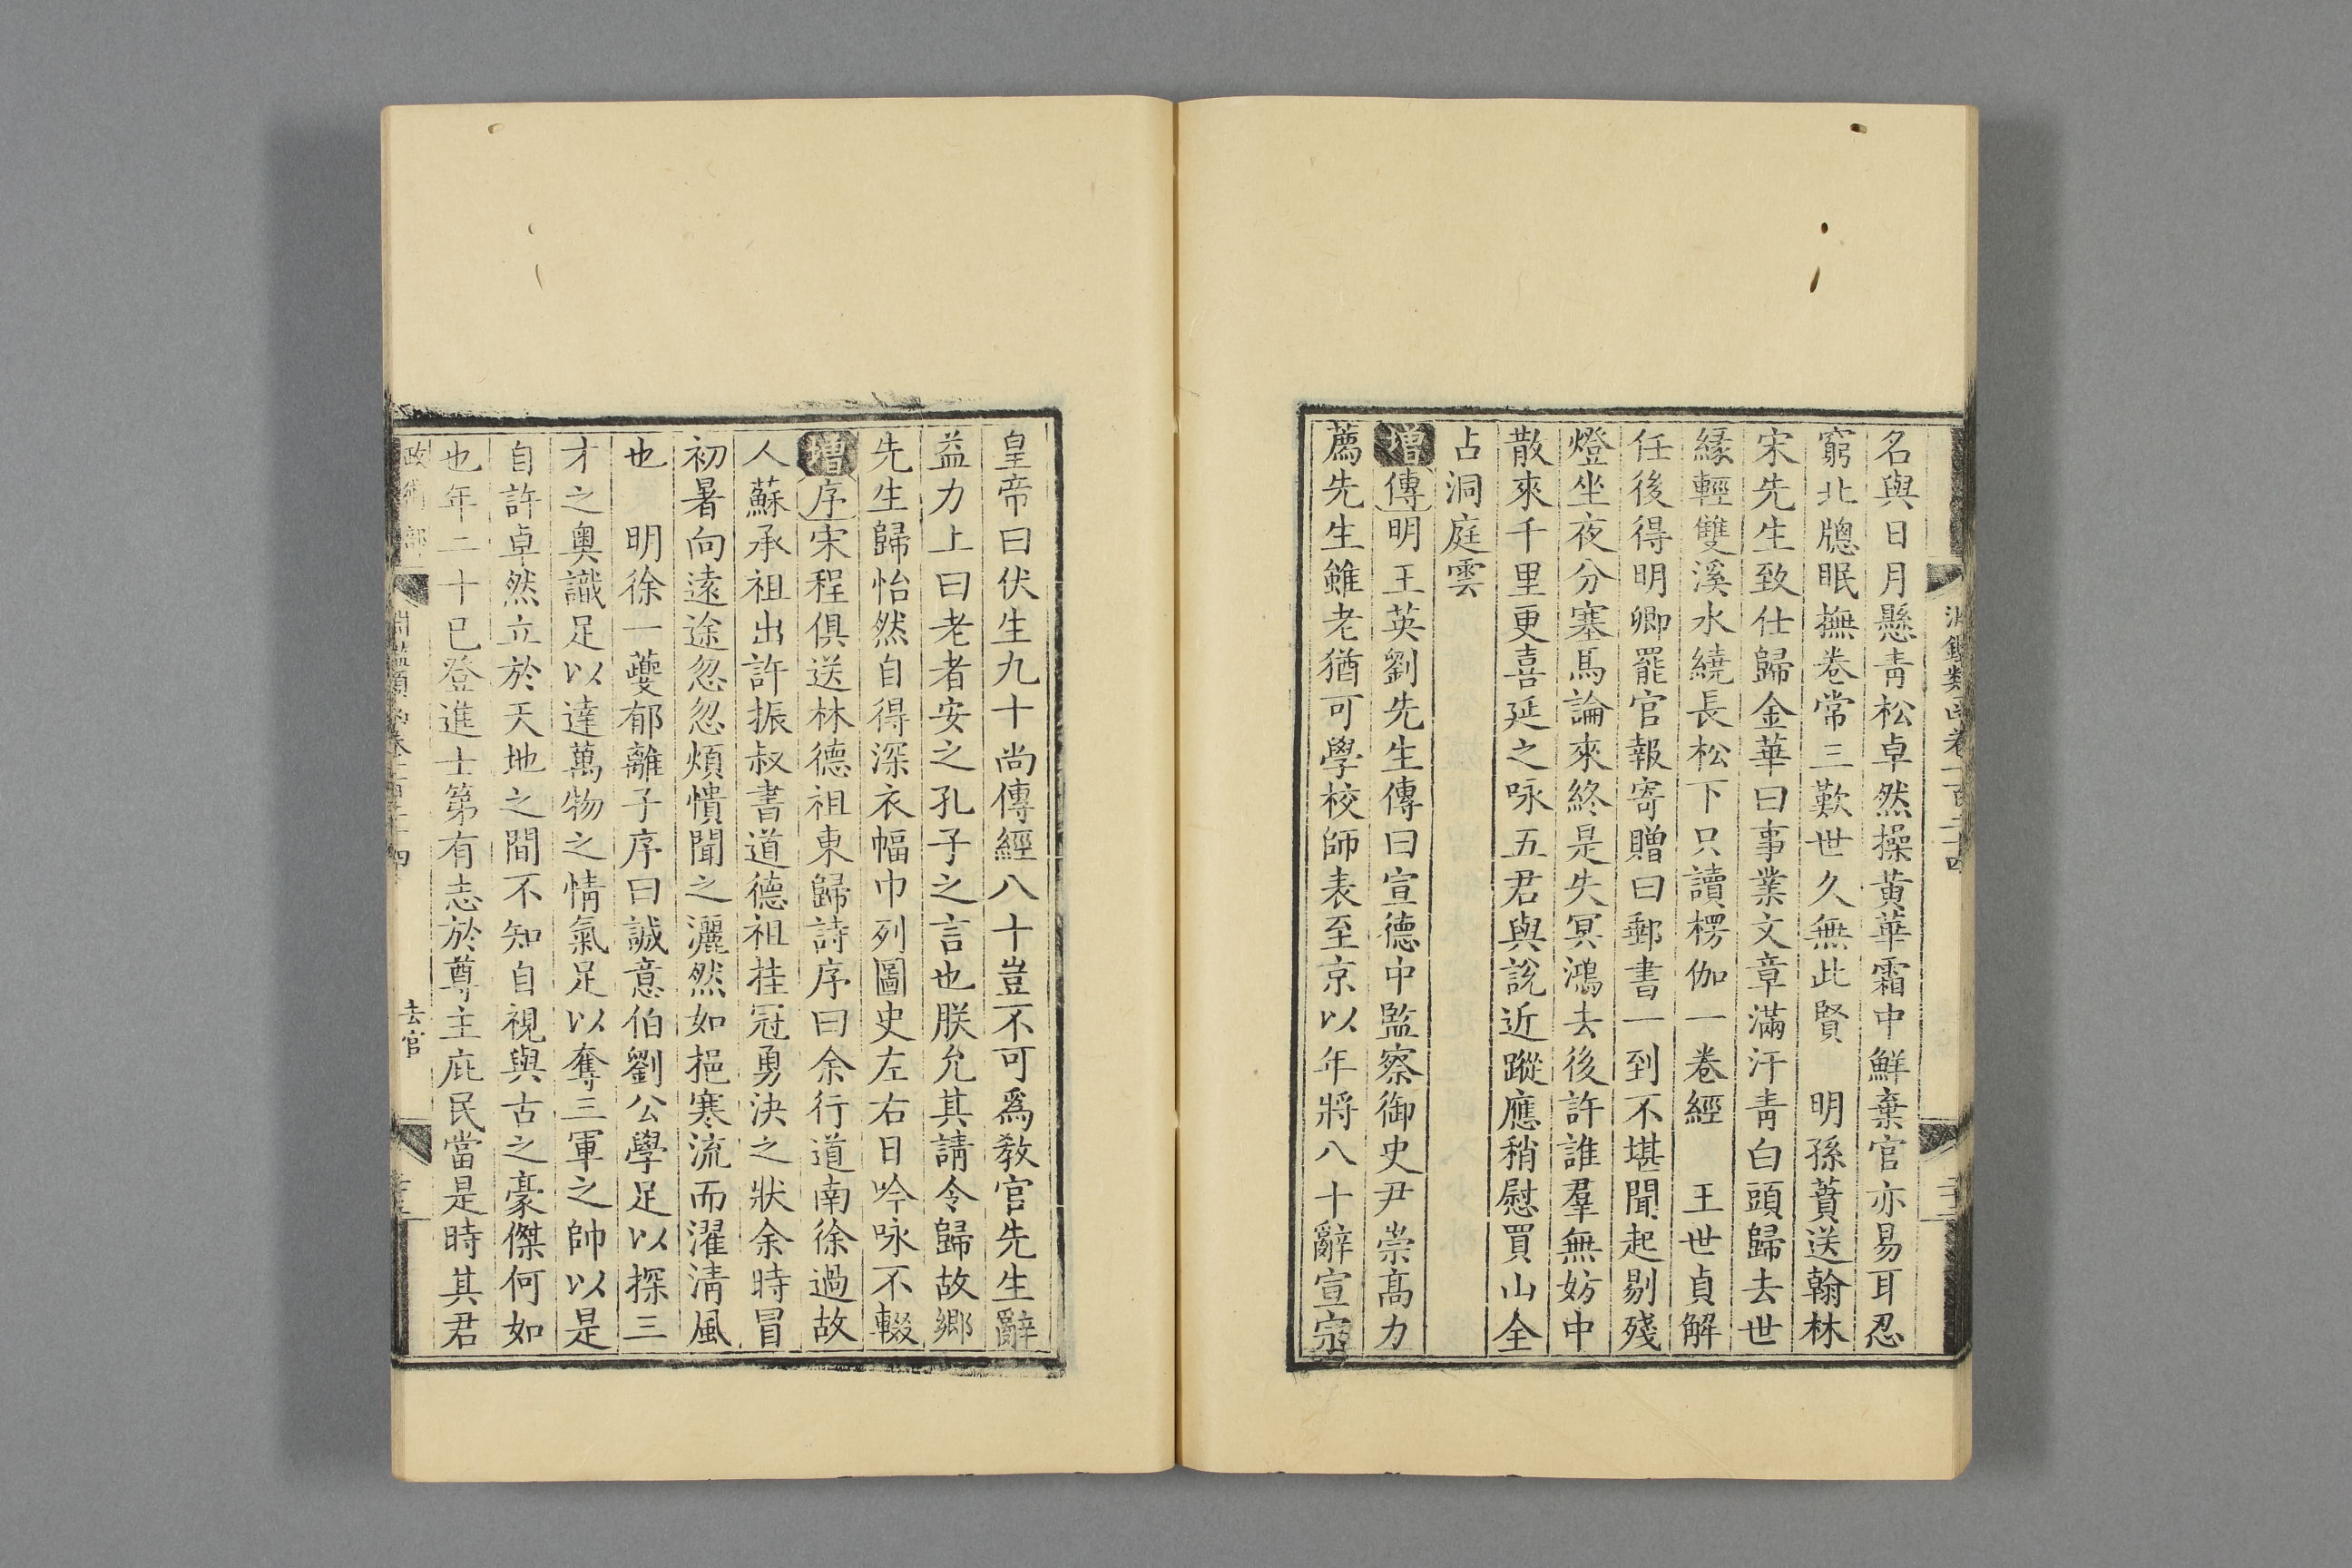 名與日月懸青松卓然操黄華霜中鮮棄官亦易耳忍
窮北牕眠撫卷常三歎世久無此賢　明孫蕡送翰林
宋先生致仕歸金華曰事業文章滿汗青白頭歸去世
緣輕雙溪水繞長松下只讀楞伽一卷經　王世貞解
任後得明卿罷官報寄贈曰郵書一到不堪聞起剔殘
燈坐夜分塞馬論來終是失冥鴻去後許誰羣無妨中
散來千里更喜延之咏五君與說近蹤應稍慰買山全
占洞庭雲
增傳明王英劉先生傳曰宣德中監察御史尹崇高力
薦先生雖老猶可學校師表至京以年將八十辭宣宗
皇帝曰伏生九十尚傳經八十豈不可爲教官先生辭
益力上曰老者安之孔子之言也朕允其請令歸故鄉
先生歸怡然自得深衣幅巾列圖史左右日吟咏不輟
增序宋程俱送林德祖東歸詩序曰余行道南徐過故
人蘇承祖出許振叔書道德祖挂冠勇決之狀余時冒
初暑向遠途忽忽煩憒聞之灑然如挹寒流而濯淸風
也　明徐一夔郁離子序曰誠意伯劉公學足以探三
才之奧識足以達萬物之情氣足以奪三軍之帥以是
自許卓然立於天地之間不知自視與古之豪傑何如
也年二十已登進士第有志於尊主庇民當是時其君
政術部
去官